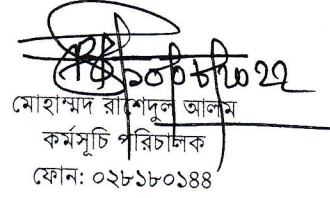 ১০/০৮/২০২২
মোহাম্মদ রাশেদুল আলম
কর্মসূচি পরিচালক
ফোন: ০২৮১৮০১৪৪